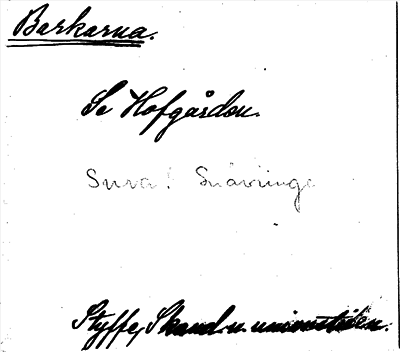 Barkarna.
Se Hofgården.
Snva! Snåvringe
Styffe, Skand. u. unionstiden.